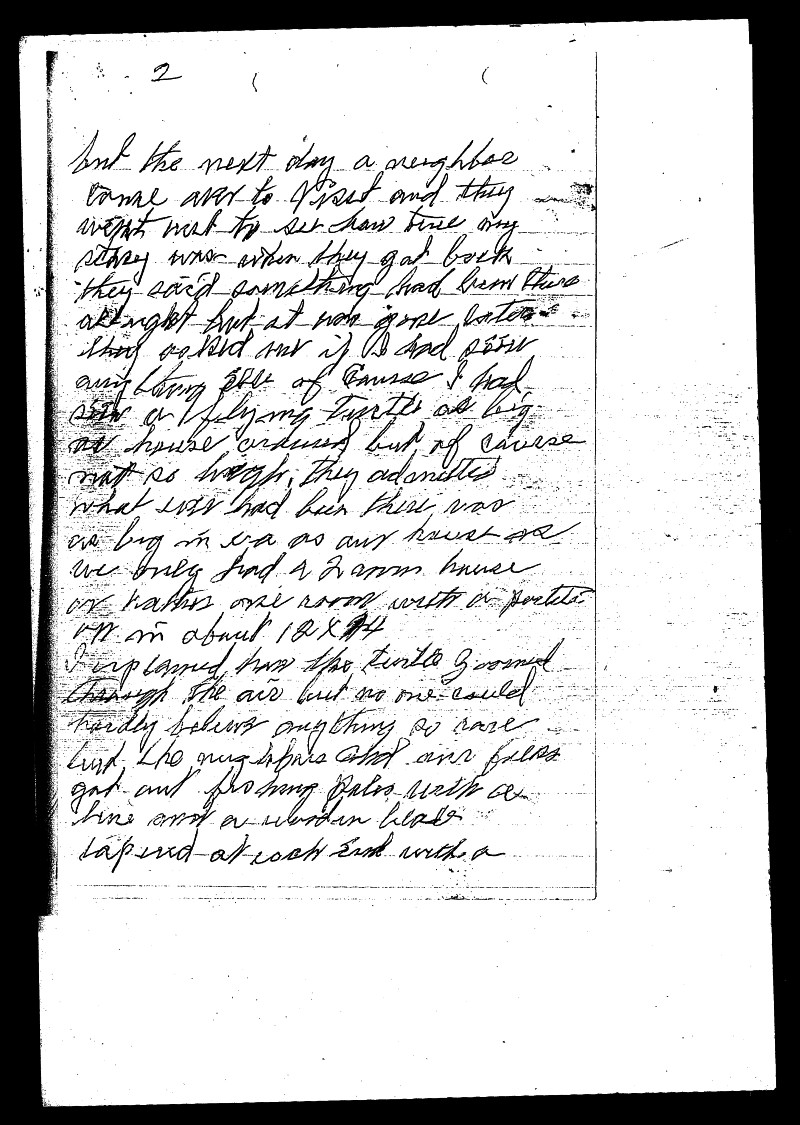 2
but the next day a neighbor
came over to visit and they
went out to see how true my
story was when they got back
they said something had been there
allright but it was gone
they asked me if I had seen
anything else of course I had
seen a flying turtle as big
as house around but of course
not so high, they admitted
what ever had been there was
as big as our house as
we only had a 2 room house
or rather one room with a partiti
on in about 12 X 14
I explained how the turtle zoomed
through the air but no one could
hardly believe anything so rare
but the neighbors and our folks
got out fishing poles with a
line and a wooden
tapered at each end with a